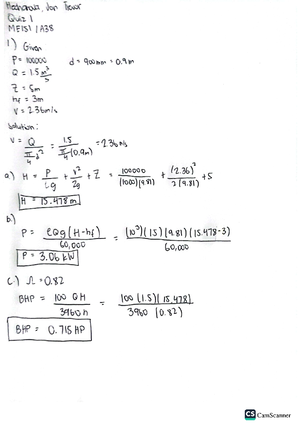 Quiz 1
ME151 / A38
1) Given
P = 100000 d = 900mm = 0.9m
Q = 1.5 m³/s
Z = 5m
hf = 3m
V = 2.36m/s
Solution:
V = Q / (π/4 d²) = 1.5 / (π/4 (0.9m)²) = 2.36 m/s
a.) H = P/ρg + v²/2g + Z = 100000 / (1000)(9.81) + (2.36)² / 2(9.81) + 5
H = 15.478 m
b.)
P = ρQg(H-hf) / 60,000 = (10³)(1.5)(9.81)(15.478-3) / 60,000
P = 3.06 kW
c.) Ω = 0.82
BHP = 100 QH / 3960 n = 100 (1.5)(15.478) / 3960 (0.82)
BHP = 0.715 HP
CS CamScanner